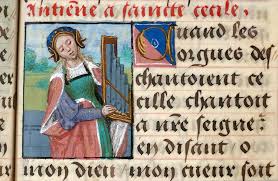 Antiene a saincte cecile.
Quand les
orgues des
chantoient ce
cille chantoit
a nre seigneˀ
en disant o
mon dieu mon cueur soit